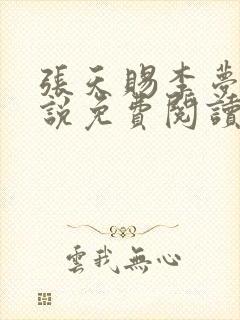 張天賜李夢
說免費閱讀
雲我無心